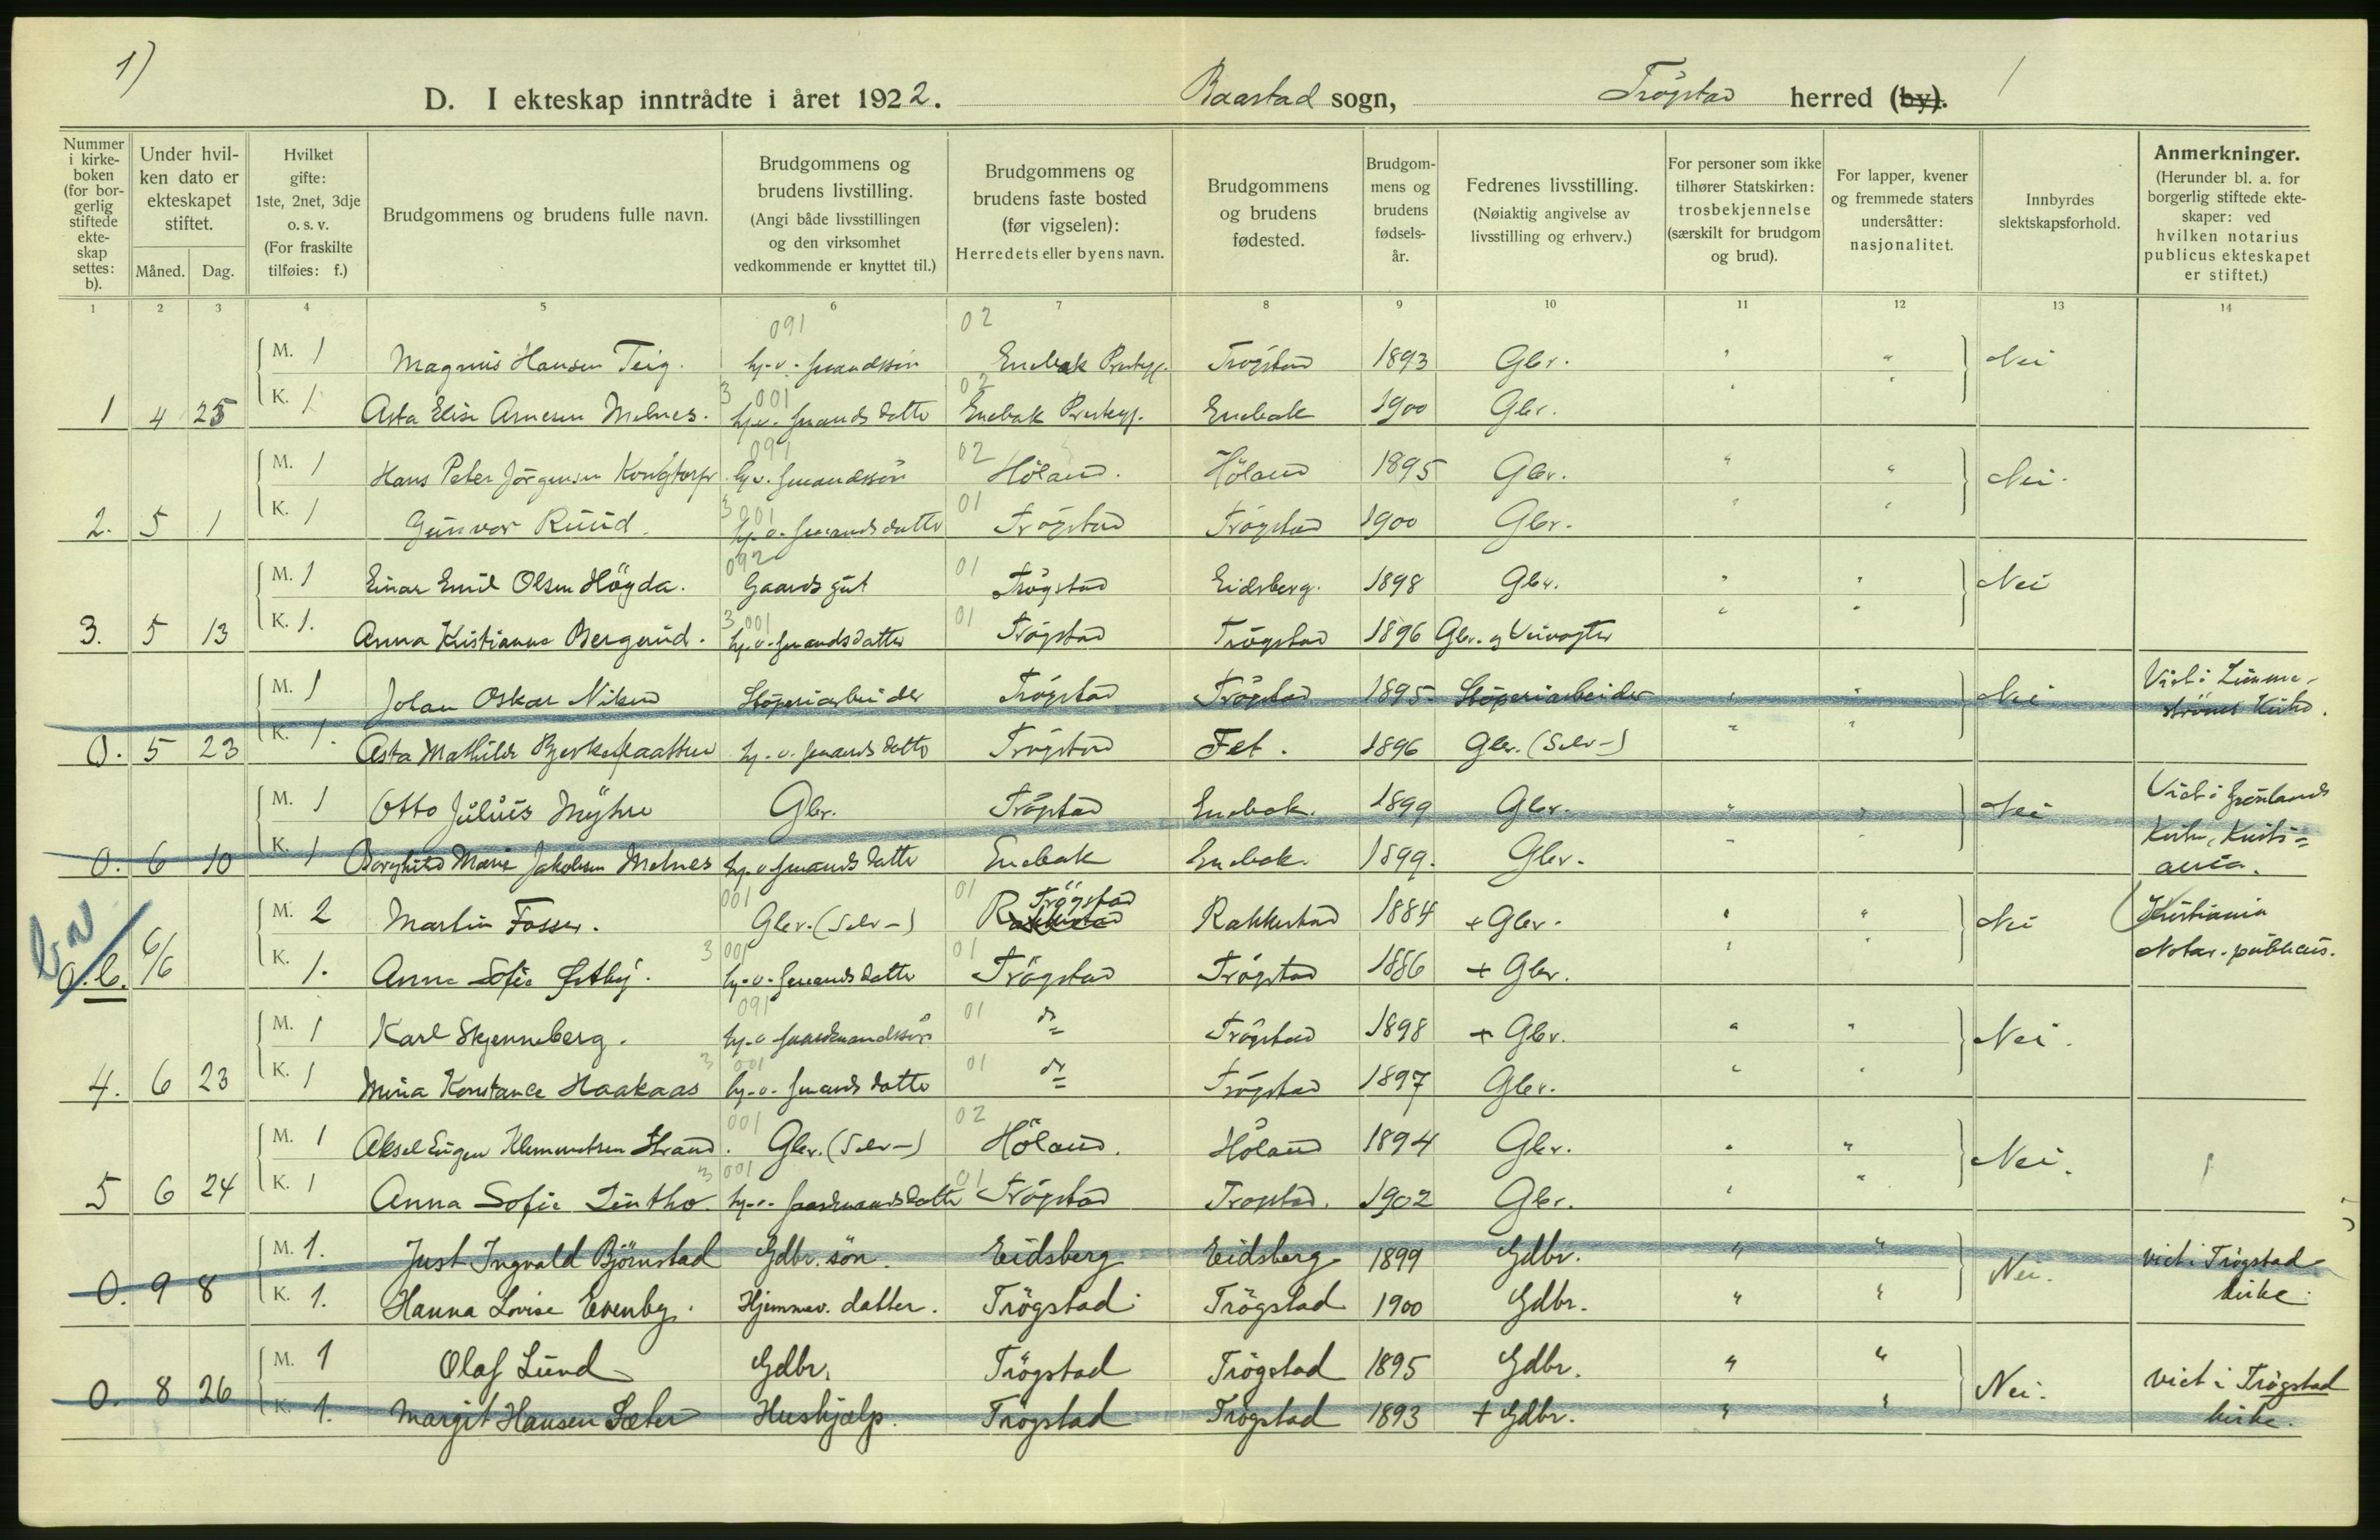 1)
D. I ekteskap inntrådte i året 1922. Baastad sogn, Trögstad herred (by). 1
Nummer i kirkeboken (for borgerlig stiftede ekteskap settes: b).
Under hvilken dato er ekteskapet stiftet.
Måned. Dag.
Hvilket gifte: 1ste, 2net, 3dje o. s. v. (For fraskilte tilføies: f.)
Brudgommens og brudens fulle navn.
Brudgommens og brudens livstilling. (Angi både livsstillingen og den virksomhet vedkommende er knyttet til.)
Brudgommens og brudens faste bosted (før vigselen): Herredets eller byens navn.
Brudgommens og brudens fødested.
Brudgommens og brudens fødselsår.
Fedrenes livsstilling. (Nøiaktig angivelse av livsstilling og erhverv.)
For personer som ikke tilhører Statskirken: trosbekjennelse (særskilt for brudgom og brud).
For lapper, kvener og fremmede staters undersåtter: nasjonalitet.
Innbyrdes slektskapsforhold.
Anmerkninger. (Herunder bl. a. for borgerlig stiftede ekteskaper: ved hvilken notarius publicus ekteskapet er stiftet.)
1 2 3 4 5 6 7 8 9 10 11 12 13 14
091 02
M. 1 Magnus Hansen Teig. hj.v. gmandssön Enebak Prestegj. Trögstad 1893 Gbr. " " Nei
3 001 02
1 4 25 K. 1 Asta Elise Arnesen Melnes. hj.v. gmands datter Enebak Prestegj. Enebak 1900 Gbr. " "
091 02
M. 1 Hans Peter Jörgensen Kongtorp hj.v. gmandssön Höland. Höland 1895 Gbr. " " Nei.
3 001 01
2. 5 1 K. 1 Gunvor Ruud. hj.v. gmands datter Trögstad Trögstad 1900 Gbr. " "
092 01
M. 1 Einar Emil Olsen Högda. Gaardsgut Trögstad Eidsberg. 1898 Gbr. " " Nei
3 001 01
3. 5 13 K. 1. Anna Kristianne Bergerud. hj.v. gmandsdatter Trögstad Trögstad 1896 Gbr. og Veivogter " "
M. 1 Johan Oskar Nilsen Stöperiarbeider Trögstad Trögstad 1895 Stöperiarbeider " " Nei Viet i
Kirke.
0. 5 23 K. 1. Asta Mathilde hj.v. gmands datter Trögstad Fet. 1896 Gbr. (Selv-) " "
M. 1 Otto Julius Myhre Gbr. Trögstad Enebak. 1899 Gbr. " " Nei Viet i Grönlands
Kirke, Kristi=
0. 6 10 K. 1 Borghild Marie Jakobsen Melnes hj.v. gmands datter Enebak Enebak. 1899. Gbr. "
ania.
001 01 Trögstad
M. 2 Martin Fosser. Gbr. (Selv-) Rakkestad Rakkestad 1884 + Gbr. " " Nei Kristiania
3 001 01 Notar. publicus.
0. b. 6/6 K. 1. Anna Sofie Østby. hj.v. gmands datter Trögstad Trögstad 1886 + Gbr. " "
091 01
M. 1 Karl Skjenneberg. hj.v. gaardmandssön do Trögstad 1898 + Gbr. " " Nei.
3 001 01
4. 6 23 K. 1 Mina Konstance Haakaas hj.v. gmands datter do Trögstad 1897 Gbr. " "
001 02
M. 1 Aksel Eugen Klemmetsen Strand. Gbr. (Selv-) Höland. Höland 1894 Gbr. " " Nei.
3 001 01
5 6 24 K. 1 Anna Sofie Lintho hj.v. gaardmandsdatter Trögstad Trögstad. 1902 Gbr. " "
M. 1. Just Ingvald Björnstad Gdbr. sön. Eidsberg Eidsberg 1899 Gdbr. " " Nei. viet i Trögstad
kirke.
0. 9 8 K. 1. Hanna Lovise Evenby. Hjemmev. datter. Trögstad Trögstad 1900 Gdbr. " "
M. 1 Olaf Lund Gdbr. Trögstad Trögstad 1895 Gdbr. " " Nei. viet i Trögstad
kirke.
0. 8 26 K. 1. Margit Hansen Sæter Hushjælp. Trögstad Trögstad 1893 + Gdbr. " "